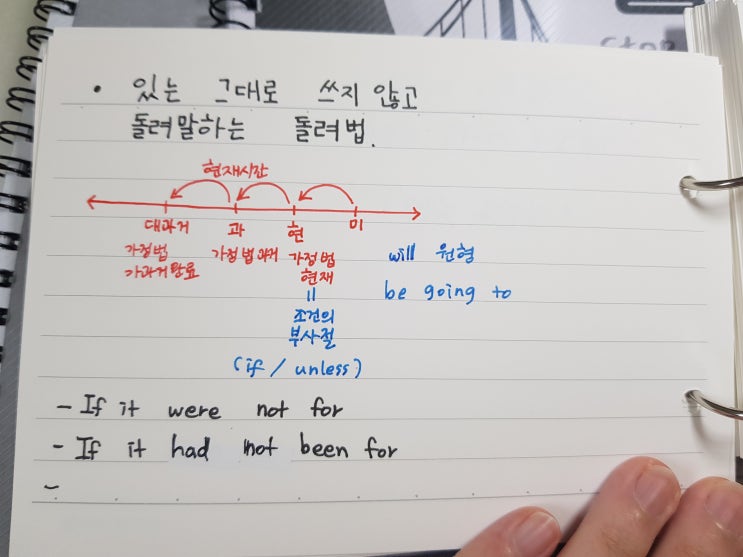 • 있는 그대로 쓰지 않고
돌려말하는 돌려법.
현재시간
대과거 과 현 미
가정법 가정법과거 가정법 will 원형
가과거완료 현재 be going to
=
조건의
부사절
(if / unless)
- If it were not for
- If it had not been for
-